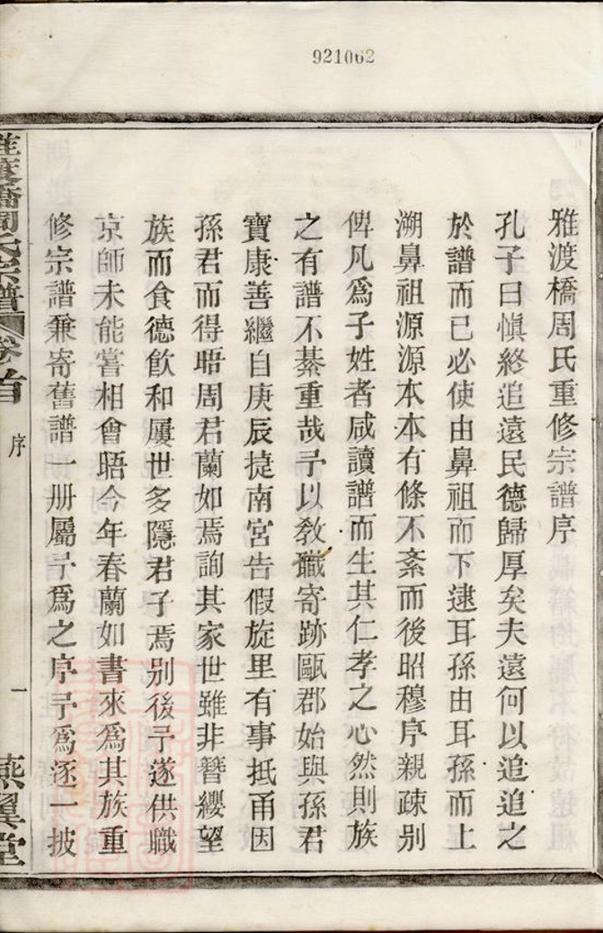 921062
雅渡橋周氏重修宗譜序
孔子曰愼終追遠民德歸厚矣夫遠何以追追之
於譜而已必使由鼻祖而下逮耳孫由耳孫而上
溯鼻祖源源本本有條不紊而後昭穆序親疎别
俾凡爲子姓者咸讀譜而生其仁孝之心然則族
之有譜不綦重哉予以教職寄跡甌郡始與孫君
寶康善繼自庚辰捷南宮告假旋里有事抵甬因
孫君而得晤周君蘭如焉詢其家世雖非簪纓望
族而食德飮和屢世多隱君子焉别後予遂供職
京師未能嘗相會晤今年春蘭如書來爲其族重
修宗譜兼寄舊譜一册屬予爲之序予爲逐一披
雅渡橋周氏宗譜
卷首
序
一
燕翼堂